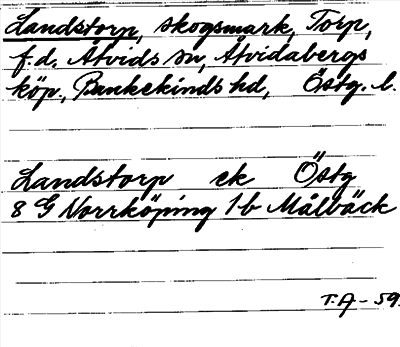 Landstorp, skogsmark, Torp,
f.d. Åtvids sn, Åtvidabergs
köp., Bankekinds hd, Östg. l.
Landstorp ek Östg
8 G Norrköping 1 b Målbäck
T.A - 59.